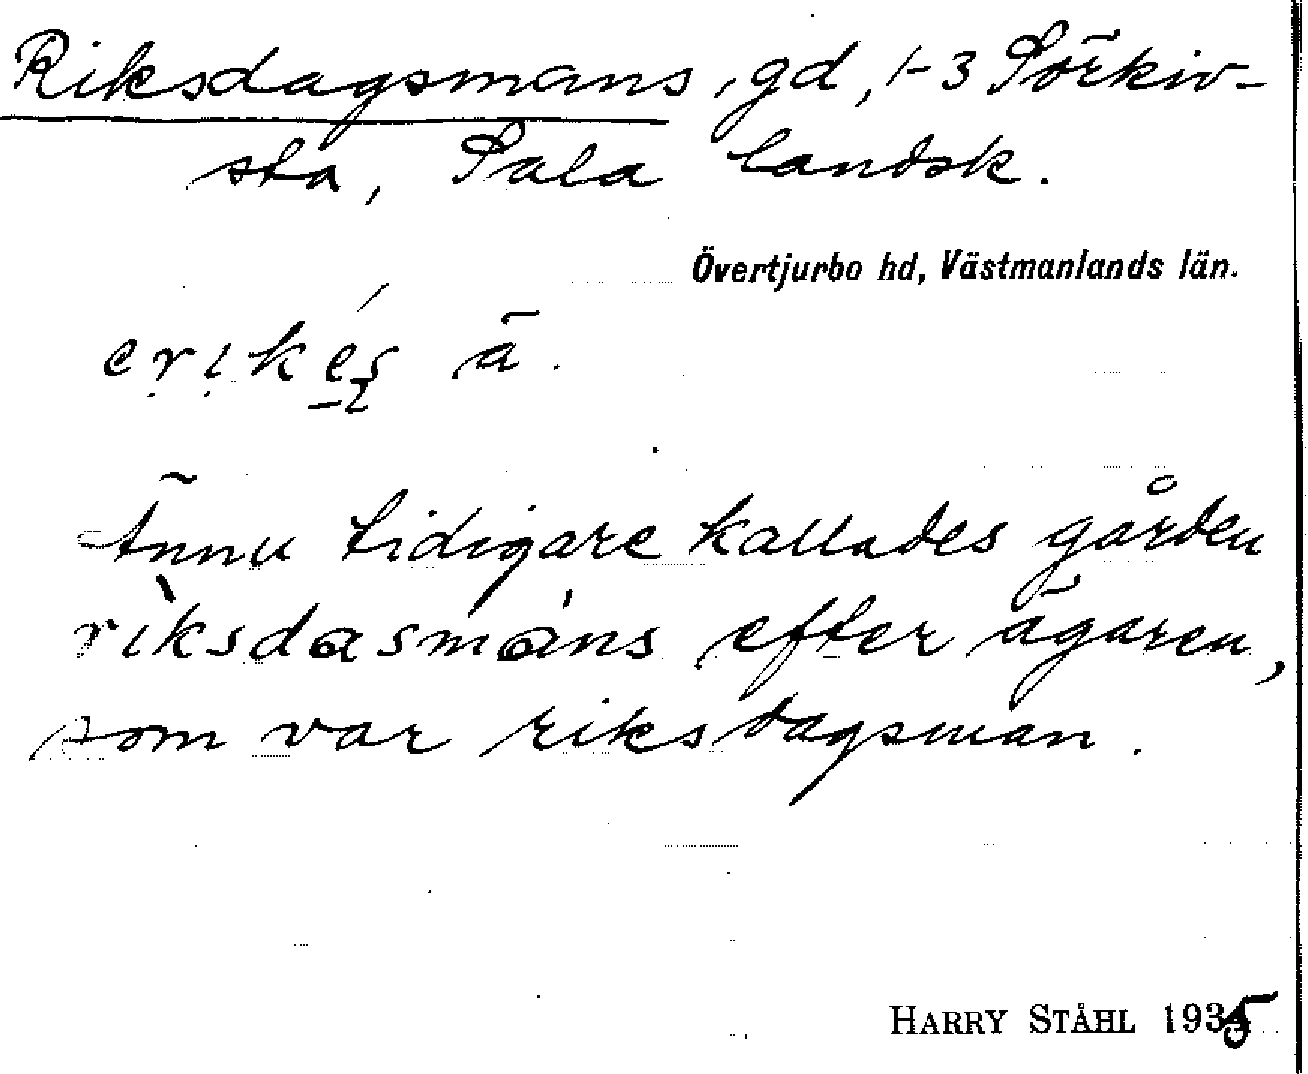 Riksdagsmans, gd, 1-3 Sörkiv-
sta, Sala landsk.
Övertjurbo hd, Västmanlands län.
ä.
Ännu tidigare kallades gården
riksdasmans efter ägaren,
som var riksdagsman.
HARRY STÅHL 1935